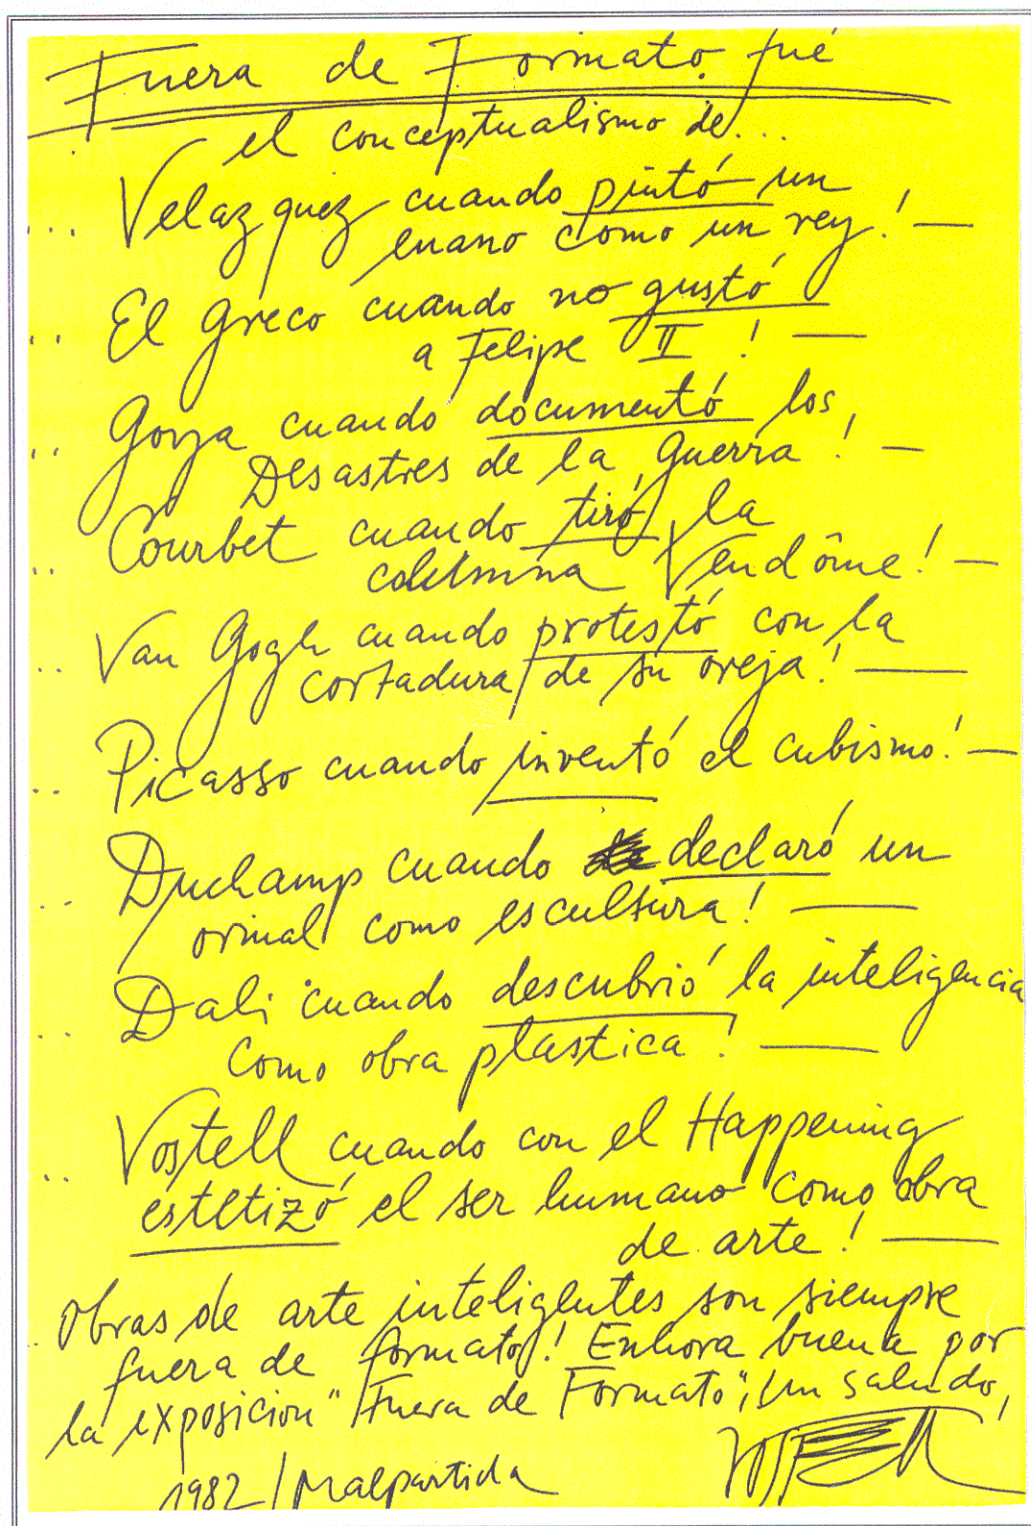 Fuera de Formato fué
el conceptualismo de...
... Velazquez cuando pintó un
enano como un rey! —
.. El Greco cuando no gustó
a Felipe II ! —
.. Goya cuando documentó los
Desastres de la Guerra! —
.. Courbet cuando tiró la
columna Vendôme! —
.. Van Gogh cuando protestó con la
cortadura de su oreja! —
.. Picasso cuando inventó el cubismo! —
... Duchamp cuando declaró un
orinal como escultura! —
... Dali cuando descubrió la inteligencia
como obra plastica! —
.. Vostell cuando con el Happening
estetizó el ser humano como obra
de arte! —
. Obras de arte inteligentes son siempre
fuera de formato! Enhora buena por
la exposicion "Fuera de Formato", un saludo,
1982 / Malpartida Vostell